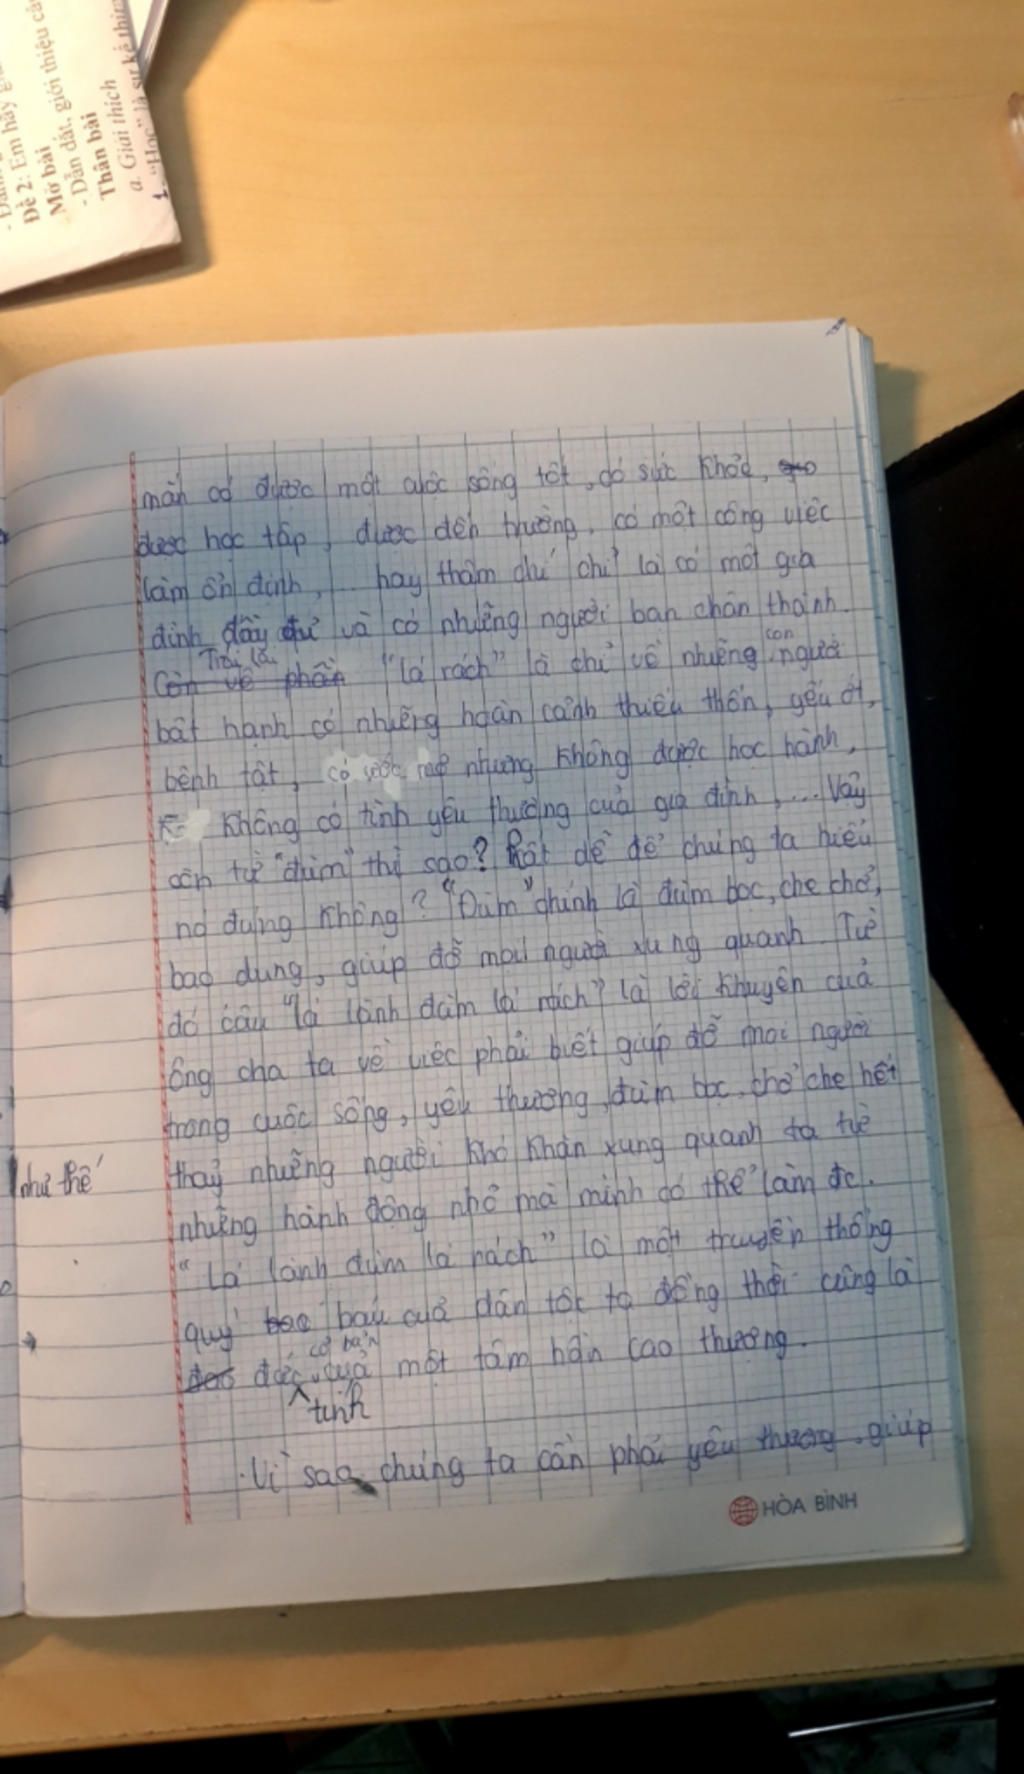 Đề 2: Em hãy
Mở bài
- Dẫn dắt, giới thiệu
Thân bài
a. Giải thích
1. "Học" là sự kế thừa
mãn có được một cuộc sống tốt, có sức khỏe,
được học tập, được đến trường, có một công việc
làm ổn định, ... hay thậm chí chỉ là có một gia
đình đầy đủ và có những người bạn chân thành.
Trái lại
Còn về phần "lá rách" là chỉ về những con người
bất hạnh có những hoàn cảnh thiếu thốn, yếu ớt,
bệnh tật, có ước mơ nhưng không được học hành,
không có tình yêu thương của gia đình, ... Vậy
còn từ "đùm" thì sao? Rất dễ để chúng ta hiểu
nó đúng không? "Đùm" chính là đùm bọc, che chở,
bao dung, giúp đỡ mọi người xung quanh. Từ
đó câu "lá lành đùm lá rách" là lời khuyên của
ông cha ta về việc phải biết giúp đỡ mọi người
trong cuộc sống, yêu thương, đùm bọc, chở che hết
như thế
thảy những người khó khăn xung quanh ta từ
những hành động nhỏ mà mình có thể làm đc.
"Lá lành đùm lá rách" là một truyền thống
quý báu của dân tộc ta đồng thời cũng là
cơ bản
đức của một tâm hồn cao thượng.
tính
Vì sao chúng ta cần phải yêu thương, giúp
HÒA BÌNH